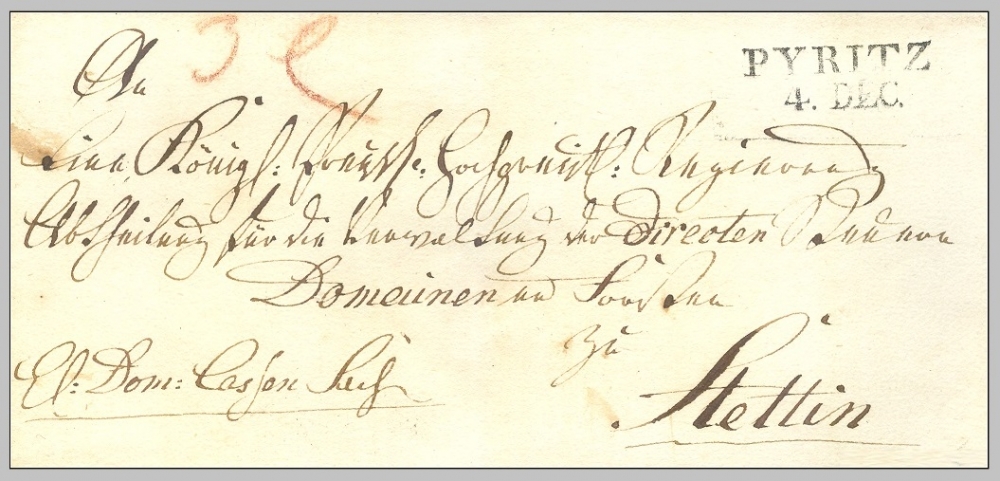 3
PYRITZ
4. DEC.
An
Eine Königl: Preuß: Hochpreißl: Regierung,
Abtheilung für die Verwaltung der Directen Steuern
Domeinen und Forsten
zu
Stettin
Dom: Cassen Sach